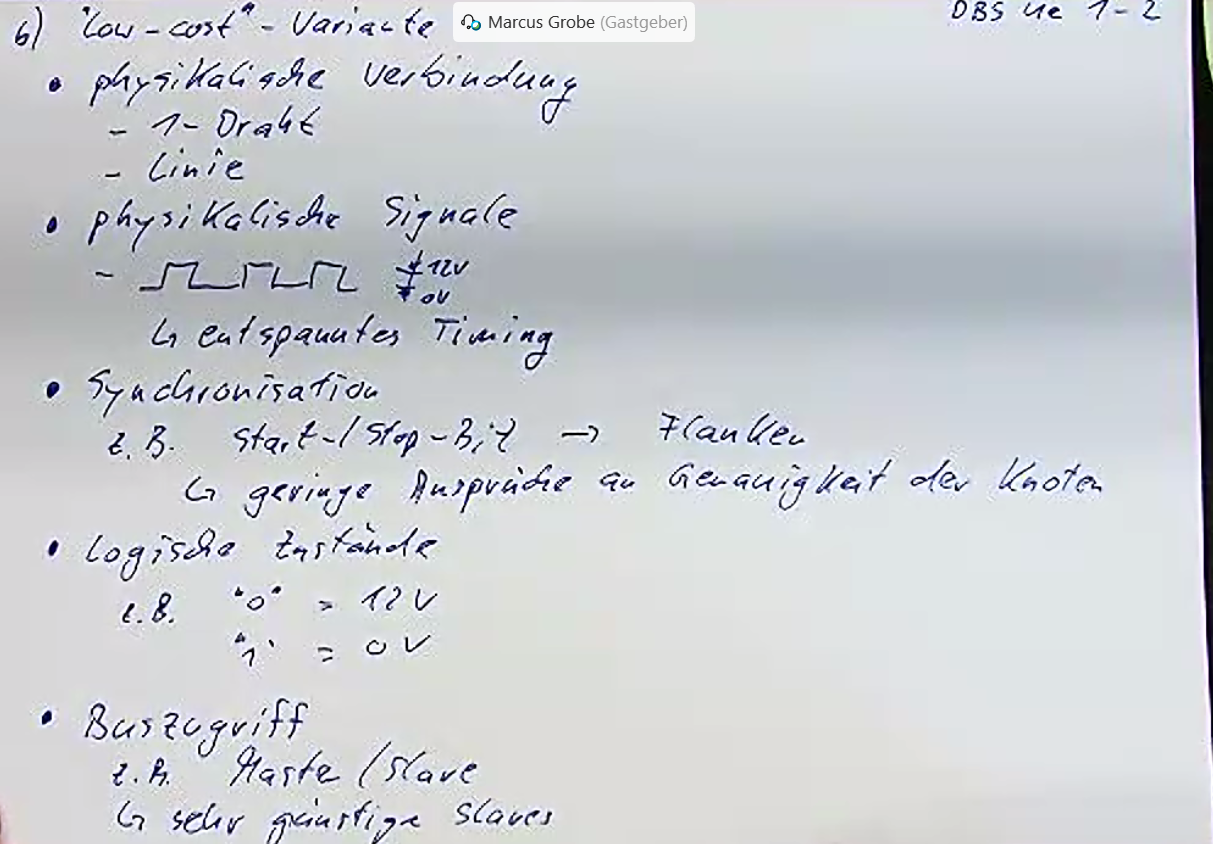 6) "low-cost"-Variante
Marcus Grobe (Gastgeber)
DBS ue 1-2
• physikalische Verbindung
- 1-Draht
- Linie
• physikalische Signale
- 12V
0V
↳ entspanntes Timing
• Synchronisation
z.B. Start-/Stop-Bit → Flanken
↳ geringe Ansprüche an Genauigkeit der Knoten
• Logische Zustände
z.B. "0" = 12V
"1" = 0V
• Buszugriff
z.B. Master/Slave
↳ sehr günstige Slaves